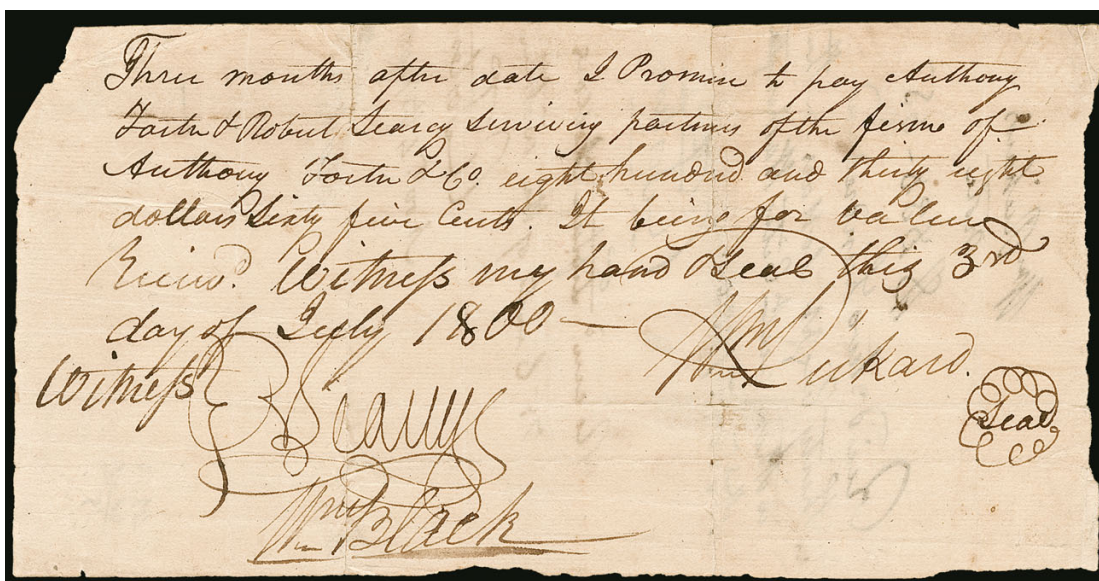 Three months after date I Promise to pay Anthony
Foster & Robert Searcy Surviving partners of the firme of
Anthony Foster & Co. eight hundred and thirty eight
dollars Sixty five Cents. It being for value
Reciev'd. Witness my hand & Seal this 3rd
day of July 1800 —
Wm Lickard.
Seal
Witness
B Searcy
Wm Black